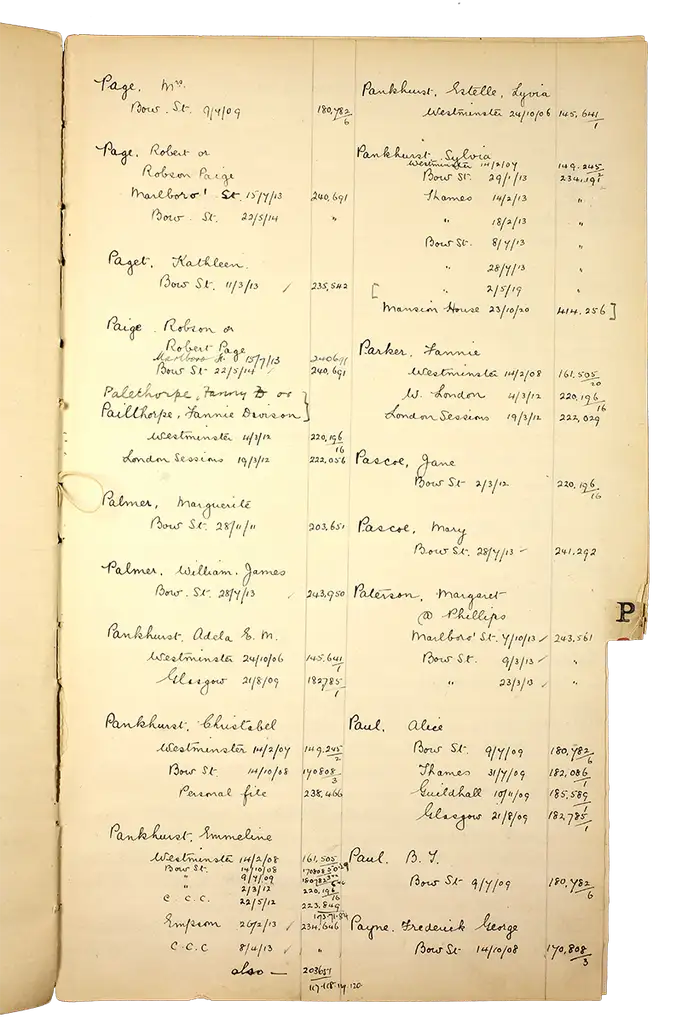 Page, Mrs.
Bow. St. 9/7/09 180,782/6
Page, Robert or
Robson Paige
Marlboro' St. 15/7/13 240,691
Bow. St. 22/5/14 "
Paget, Kathleen.
Bow St. 11/3/13 ✓ 235,542
Paige. Robson or
Robert Page
Marlboro St. 15/7/13 240691
Bow St. 22/5/14 ✓ 240,691
Palethorpe, Fanny D or
Pailthorpe, Fannie Davison }
Westminster 4/3/12 220,196/16
London Sessions 19/3/12 222,056
Palmer, Marguerite
Bow St. 28/11/11 203,651
Palmer, William. James
Bow. St. 28/7/13 ✓ 243,950
Pankhurst, Adela E. M.
Westminster 24/10/06 145,641/1
Glasgow 21/8/09 182785/1
Pankhurst, Christabel
Westminster 14/2/07 149,245/2
Bow St. 14/10/08 170808/3
Personal file 238,466
Pankhurst, Emmeline
Westminster 14/2/08 161,505
Bow St. 14/10/08 170808
" 9/7/09 180782
" 2/3/12 220,196/16
C. C. C. 22/5/12 223,849
Empson 26/2/13 ✓ 234,646
C.C.C 8/4/13 ✓ "
also — 203651
117-118-119.120
Pankhurst, Estelle, Sylvia
Westminster 24/10/06 145,641/1
Pankhurst, Sylvia
Westminster 14/2/07 149.245/2
Bow St. 29/1/13 234,191
Thames 14/2/13 "
" 18/2/13 "
Bow St. 8/7/13 "
" 28/7/13 "
[ " 2/5/19 "
Mansion House 23/10/20 414.256 ]
Parker, Fannie
Westminster 14/2/08 161,505/20
W. London 4/3/12 220,196/16
London Sessions 19/3/12 222,029
Pascoe, Jane
Bow St 2/3/12 220,196/16
Pascoe, Mary
Bow St. 28/7/13 ✓ 241,292
Paterson, Margaret
@ Phillips
Marlboro' St. 7/10/13 ✓ 243,561
Bow St. 9/3/13 ✓ "
" 23/3/13 ✓ "
Paul, Alice
Bow St. 9/7/09 180,782/6
Thames 31/7/09 182,086/1
Guildhall 10/11/09 185,589/1
Glasgow 21/8/09 182,785/1
Paul, B. T.
Bow St 9/7/09 180,782/6
Payne, Frederick George
Bow St. 14/10/08 170,808/3
P